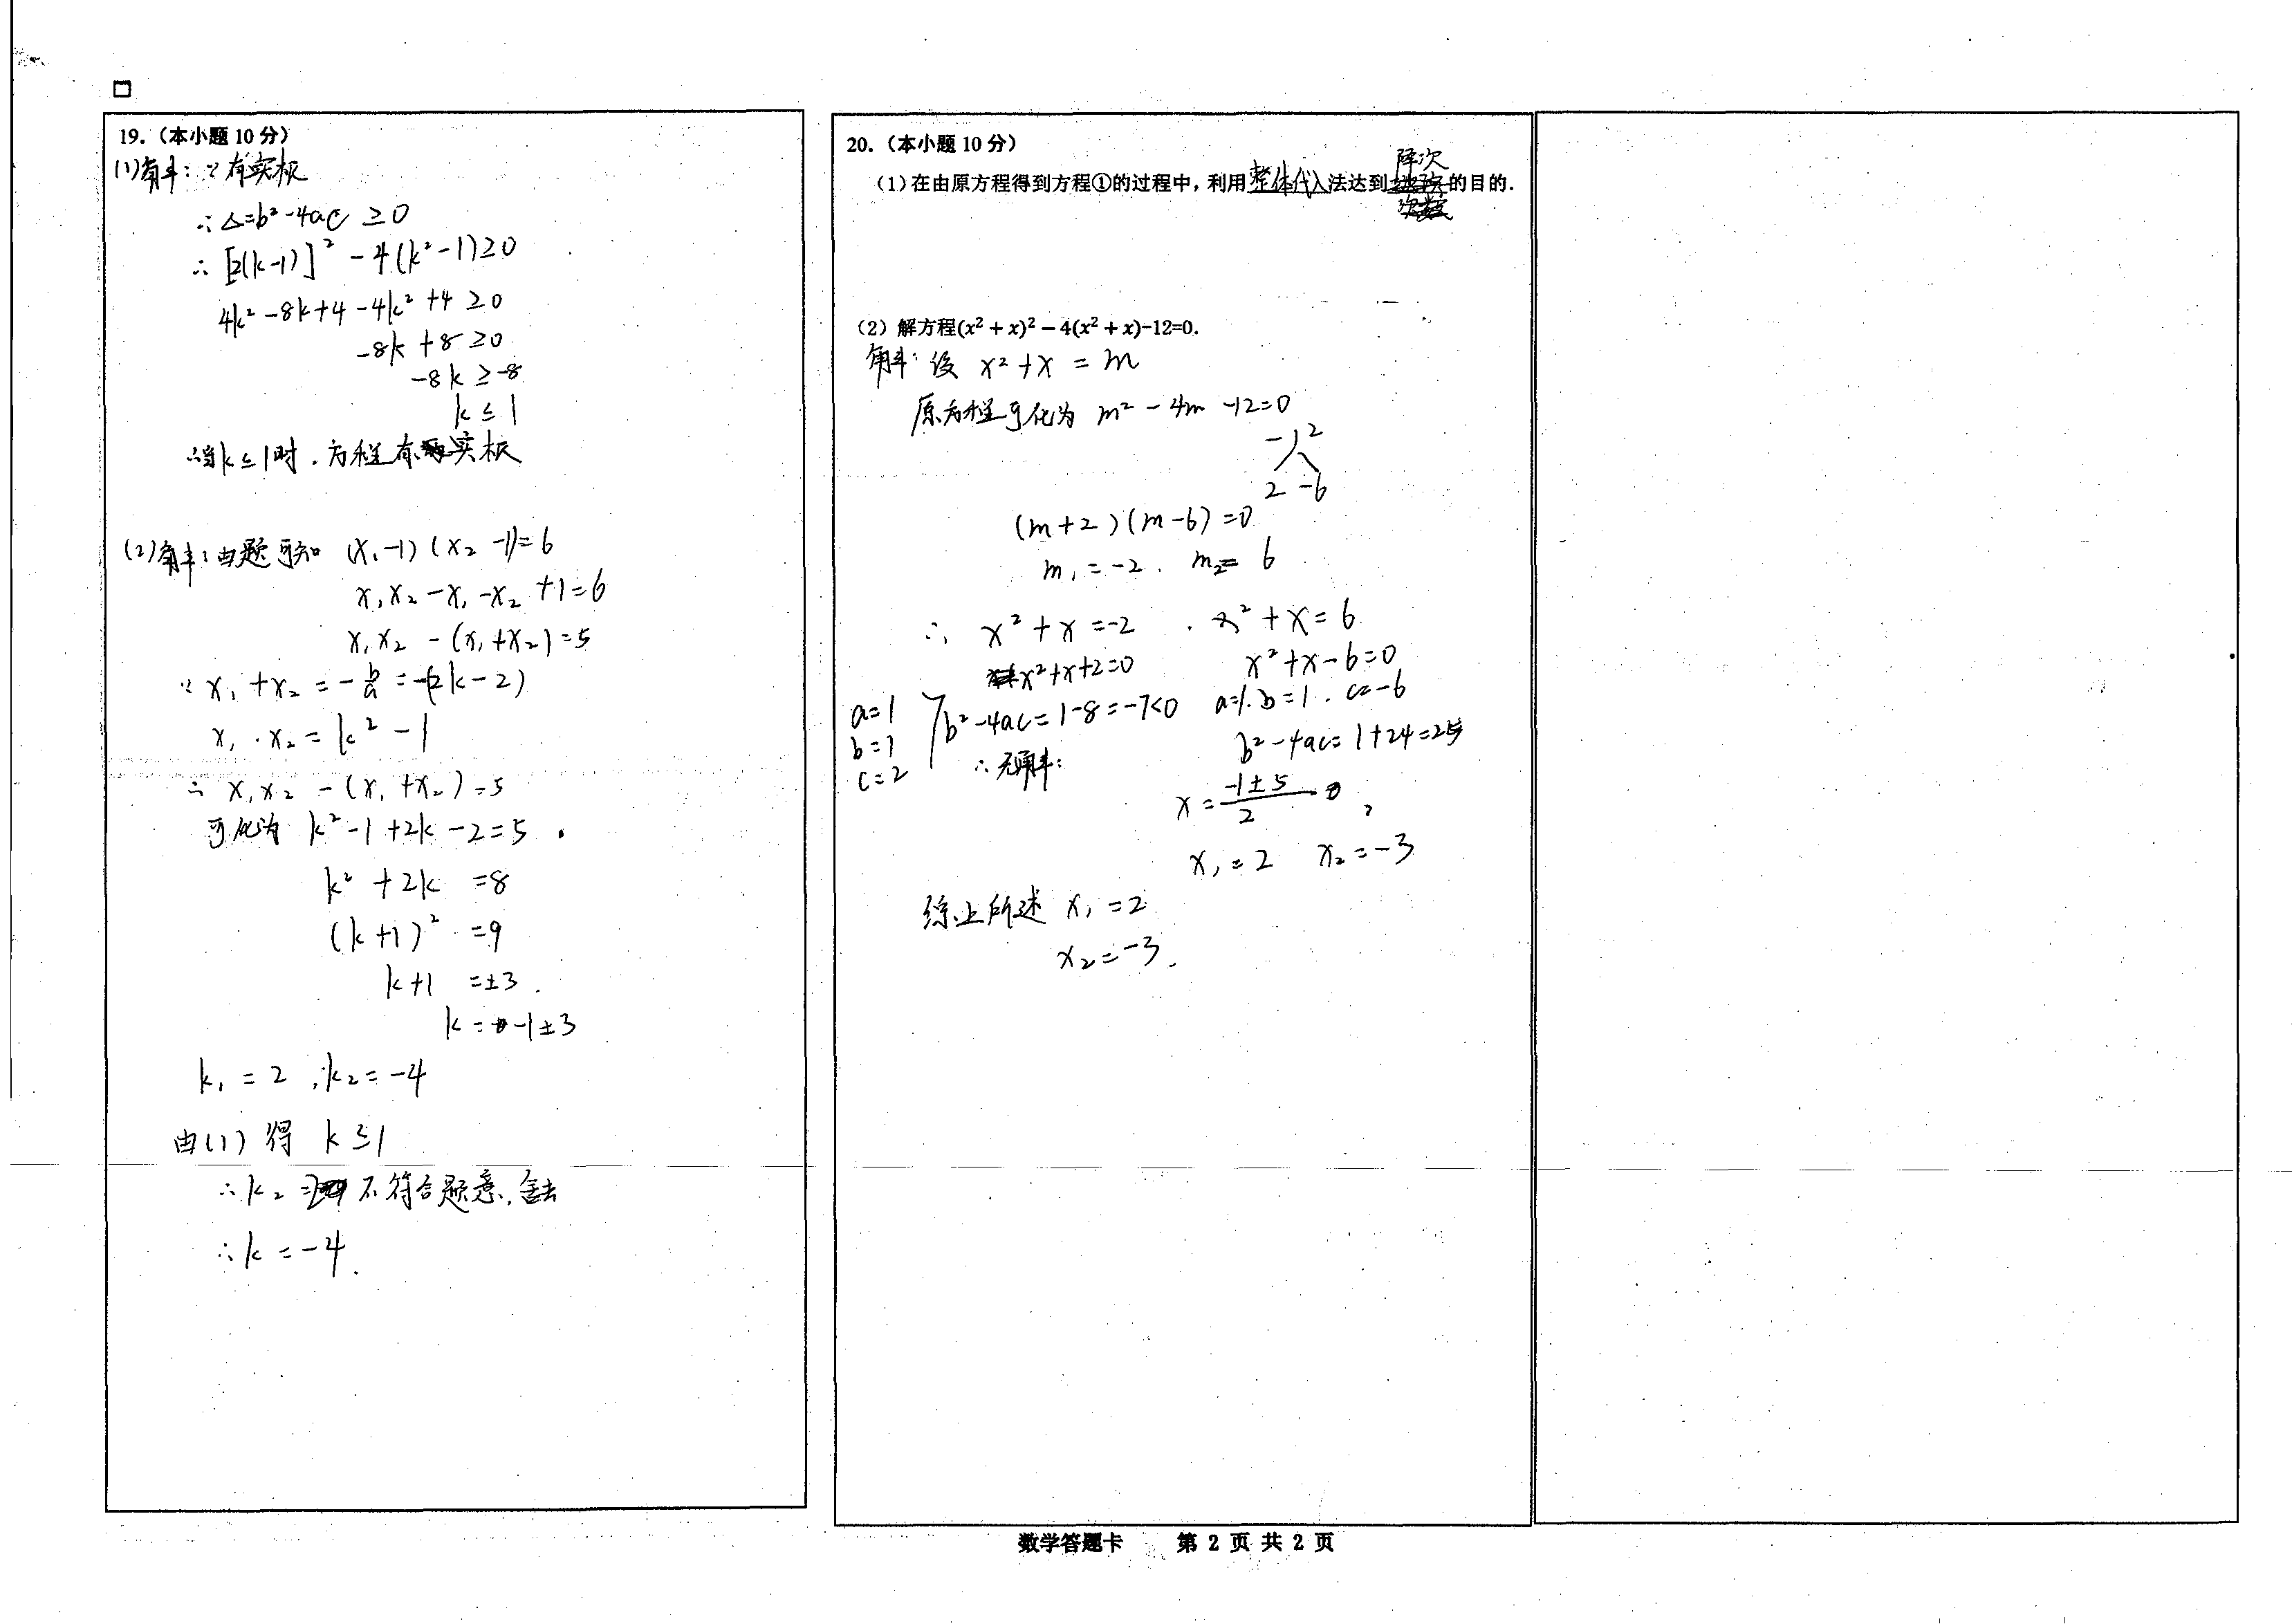 19.（本小题 10 分）
(1)解：∵有实根
∴△=b²-4ac ≥0
∴[2(k-1)]²-4(k²-1)≥0
4k²-8k+4-4k²+4≥0
-8k+8≥0
-8k≥-8
k≤1
∴当k≤1时．方程有实根
(2)解：由题可知 (x₁-1)(x₂-1)=6
x₁x₂-x₁-x₂+1=6
x₁x₂-(x₁+x₂)=5
∵x₁+x₂=-b/a=-(2k-2)
x₁·x₂=k²-1
∴x₁x₂-(x₁+x₂)=5
可化为 k²-1+2k-2=5
k²+2k =8
(k+1)² =9
k+1 =±3.
k=-1±3
k₁=2，k₂=-4
由(1)得 k≤1
∴k₂=2不符合题意，舍去
∴k=-4.
20.（本小题 10 分）
（1）在由原方程得到方程①的过程中，利用整体代入法达到降次的目的．
（2）解方程(x² + x)² − 4(x² + x)-12=0.
解：设 x²+x=m
原方程可化为 m²-4m-12=0
2
2 -6
(m+2)(m-6)=0
m₁=-2． m₂=6
∴ x²+x=-2 ．x²+x=6
x²+x+2=0 x²+x-6=0
a=1 b=1 c=2 b²-4ac=1-8=-7<0 a=1．b=1．c=-6
∴无解； b²-4ac=1+24=25
x=(-1±5)/2
x₁=2 x₂=-3
综上所述 x₁=2
x₂=-3.
数学答题卡 第 2 页 共 2 页